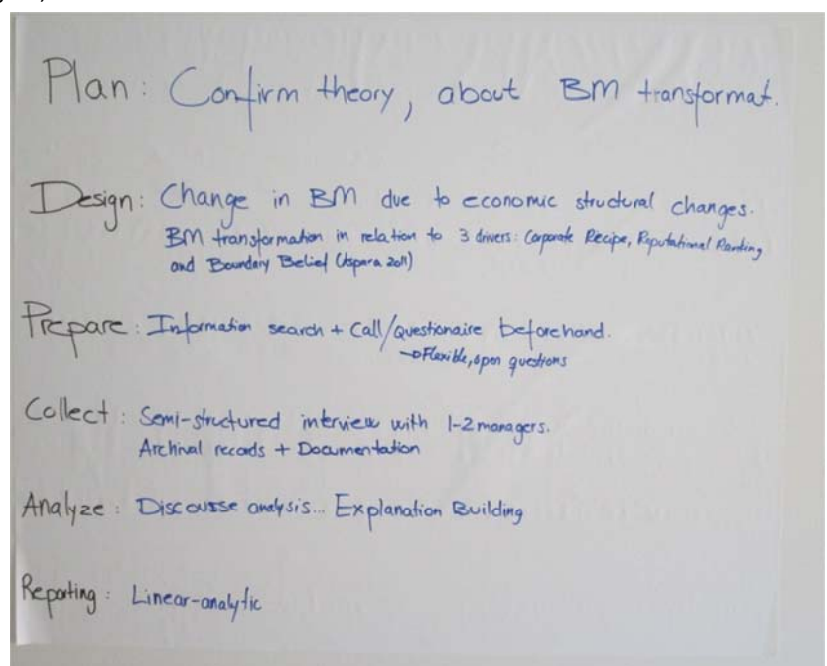 Plan: Confirm theory, about BM transformat.
Design: Change in BM due to economic structural changes.
BM transformation in relation to 3 drivers: Corporate Recipe, Reputational Ranking
and Boundary Belief (Aspara 2011)
Prepare: Information search + Call/Questionaire beforehand.
→ Flexible, open questions
Collect: Semi-structured interview with 1-2 managers.
Archival records + Documentation
Analyze: Discourse analysis... Explanation Building
Reporting: Linear-analytic